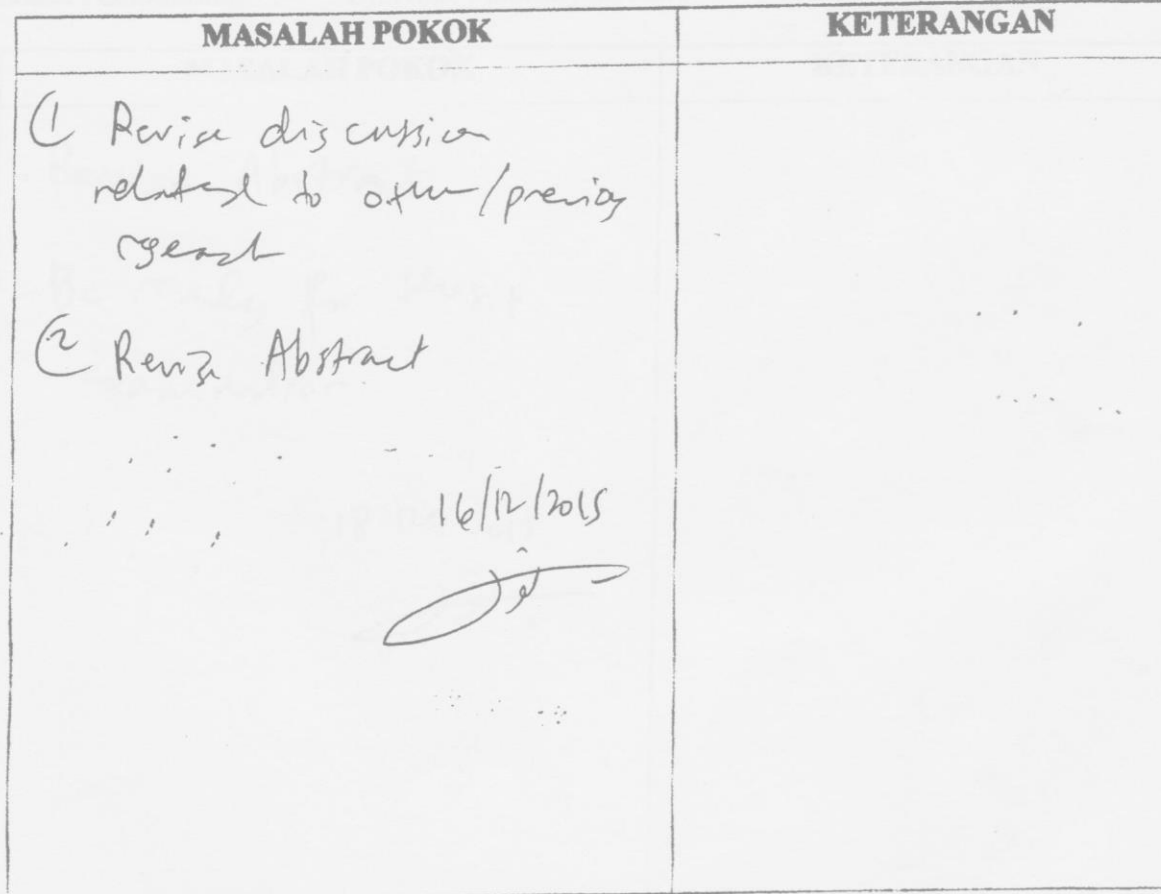 MASALAH POKOK
KETERANGAN
① Revise discussion
related to other/previous
research
② Revise Abstract
16/12/2015